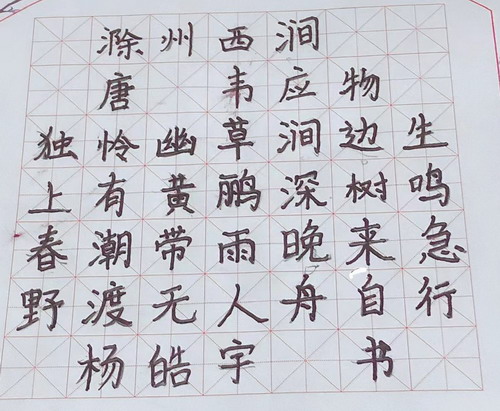 滁州西涧
唐 韦应物
独怜幽草涧边生
上有黄鹂深树鸣
春潮带雨晚来急
野渡无人舟自行
杨皓宇 书